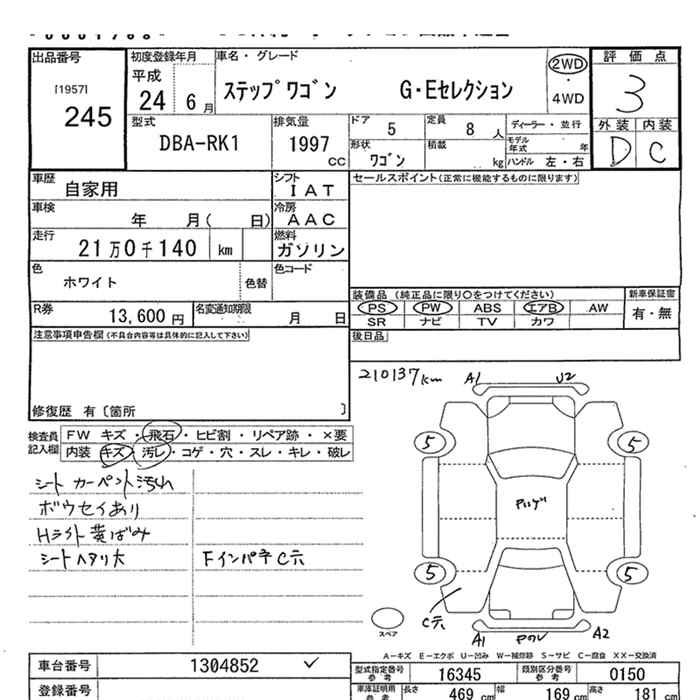 出品番号 初度登録年月 車名・グレード 評価点
[1957] 245
平成 24 6月
ステップワゴン G・Eセレクション
2WD ・ 4WD
3
外装 内装
D C
型式 DBA-RK1
排気量 1997 CC
ドア 5 定員 8 人 ディーラー・並行
形状 ワゴン 積載 kg モデル年式 年
ハンドル 左・右
車歴 自家用 シフト IAT
セールスポイント(正常に機能するものに限ります)
車検 年 月( 日) 冷房 AAC
走行 21万0千140 km 燃料 ガソリン
色 ホワイト 色替 色コード
装備品 (純正品に限り○をつけてください) 新車保証書
PS PW ABS エアB AW 有・無
SR ナビ TV カワ
R券 13,600 円 名変通知期限 月 日
注意事項申告欄(不具合内容等は具体的に記入して下さい) 後日品
修復歴 有〔箇所 〕
210137km A1 U2
検査員記入欄
FW キズ・飛石・ヒビ割・リペア跡・×要
内装 キズ・汚レ・コゲ・穴・スレ・キレ・破レ
5 5
シート カーペント汚れ
ボウセイあり
Hライト黄ばみ
シートヘタリ大 Fインパネ C穴
5 5
C穴
スペア
A1 A2
A-キズ E-エクボ U-凹み W-補修跡 S-サビ C-腐食 XX-交換済
車台番号 1304852 ✓
型式指定番号 参考 16345 類別区分番号 参考 0150
登録番号
車庫証明用 参考 長さ 469 cm 幅 169 cm 高さ 181 cm